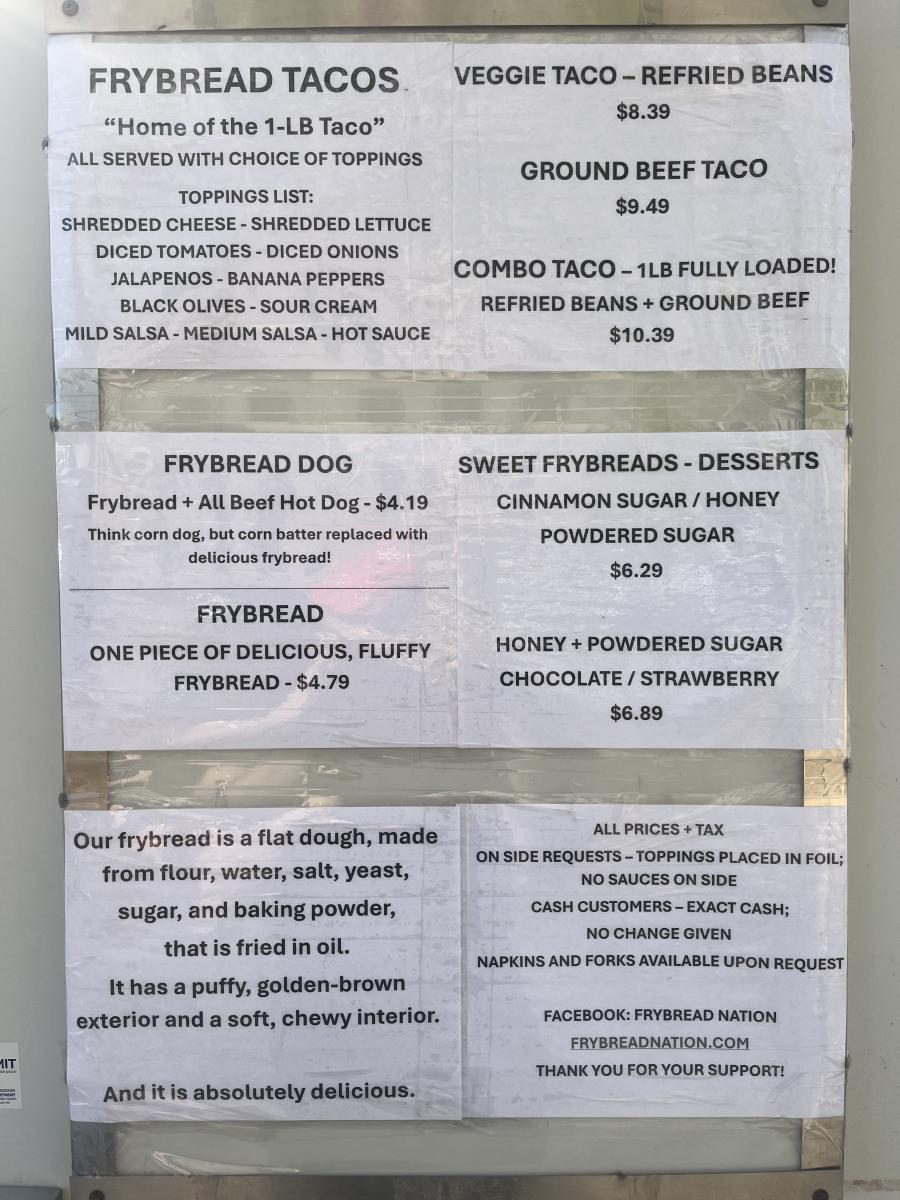 FRYBREAD TACOS
“Home of the 1-LB Taco”
ALL SERVED WITH CHOICE OF TOPPINGS
TOPPINGS LIST:
SHREDDED CHEESE - SHREDDED LETTUCE
DICED TOMATOES - DICED ONIONS
JALAPENOS - BANANA PEPPERS
BLACK OLIVES - SOUR CREAM
MILD SALSA - MEDIUM SALSA - HOT SAUCE
VEGGIE TACO – REFRIED BEANS
$8.39
GROUND BEEF TACO
$9.49
COMBO TACO – 1LB FULLY LOADED!
REFRIED BEANS + GROUND BEEF
$10.39
FRYBREAD DOG
Frybread + All Beef Hot Dog - $4.19
Think corn dog, but corn batter replaced with
delicious frybread!
FRYBREAD
ONE PIECE OF DELICIOUS, FLUFFY
FRYBREAD - $4.79
SWEET FRYBREADS - DESSERTS
CINNAMON SUGAR / HONEY
POWDERED SUGAR
$6.29
HONEY + POWDERED SUGAR
CHOCOLATE / STRAWBERRY
$6.89
Our frybread is a flat dough, made
from flour, water, salt, yeast,
sugar, and baking powder,
that is fried in oil.
It has a puffy, golden-brown
exterior and a soft, chewy interior.
And it is absolutely delicious.
ALL PRICES + TAX
ON SIDE REQUESTS – TOPPINGS PLACED IN FOIL;
NO SAUCES ON SIDE
CASH CUSTOMERS – EXACT CASH;
NO CHANGE GIVEN
NAPKINS AND FORKS AVAILABLE UPON REQUEST
FACEBOOK: FRYBREAD NATION
FRYBREADNATION.COM
THANK YOU FOR YOUR SUPPORT!